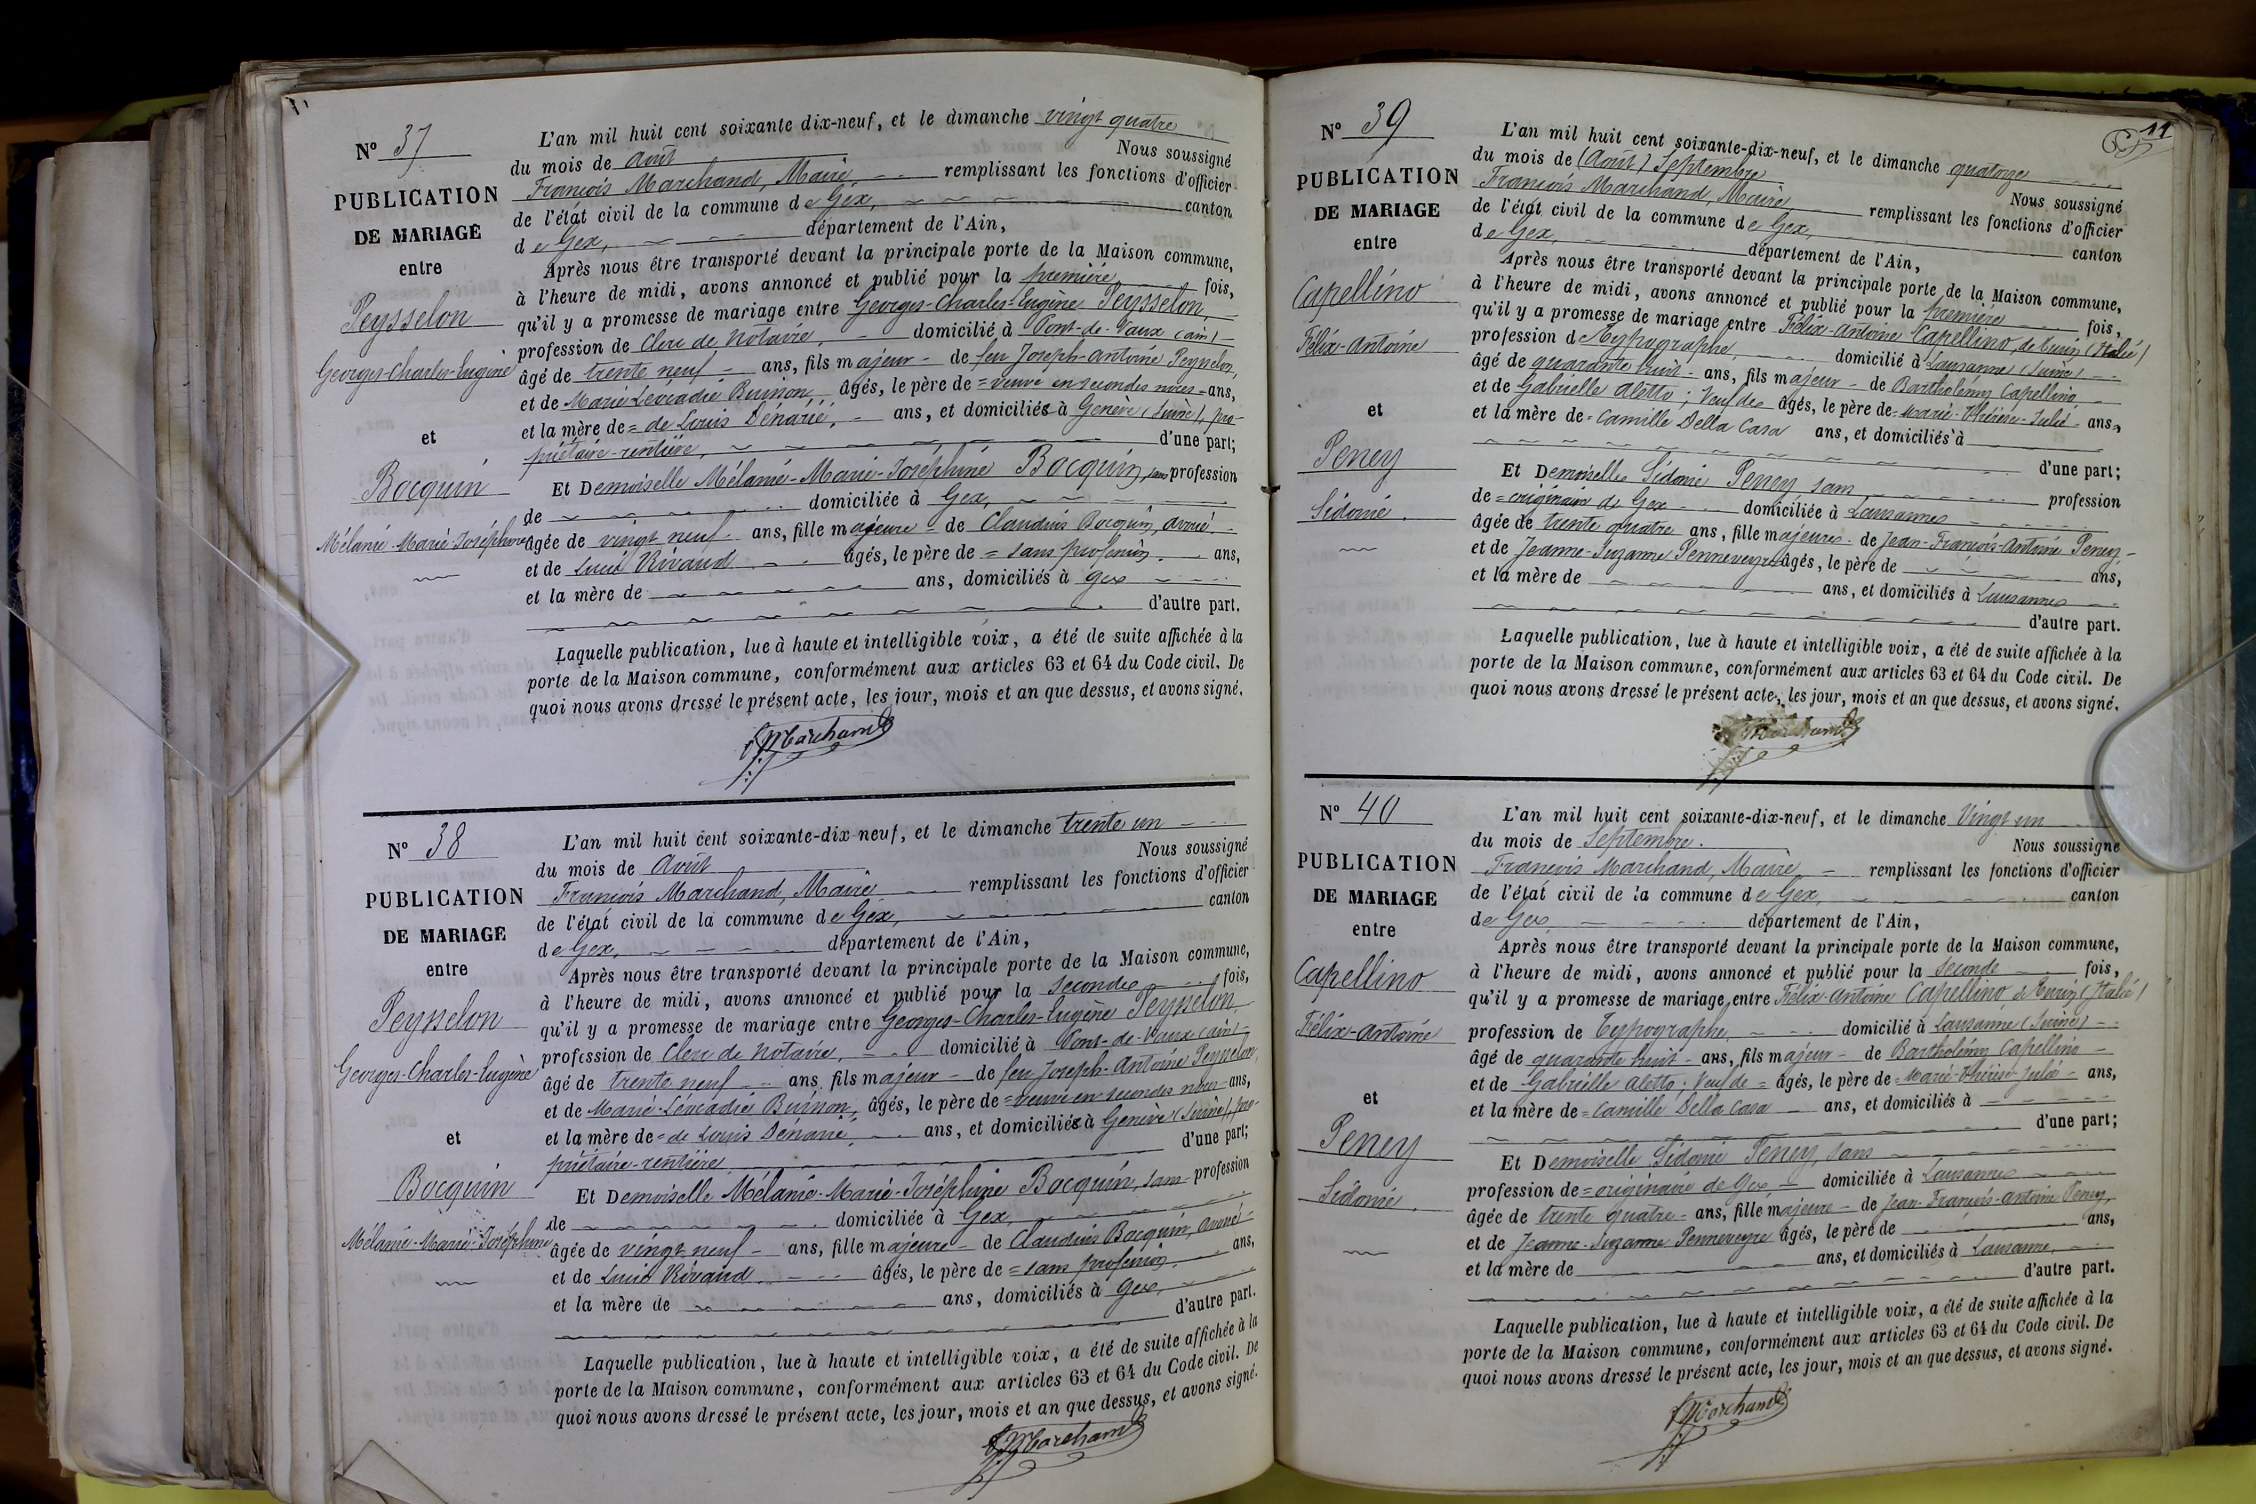 N° 37
PUBLICATION
DE MARIAGE
entre
Peysselon
Georges-Charles-Eugène
et
Bocquin
Mélanie-Marie-Joséphine
L'an mil huit cent soixante dix-neuf, et le dimanche vingt quatre
du mois de Août Nous soussigné
François Marchand, Maire, remplissant les fonctions d'officier
de l'état civil de la commune de Gex, canton
de Gex, département de l'Ain,
Après nous être transporté devant la principale porte de la Maison commune,
à l'heure de midi, avons annoncé et publié pour la première fois,
qu'il y a promesse de mariage entre Georges-Charles-Eugène Peysselon,
profession de Clerc de Notaire, domicilié à Pont-de-Vaux (ain)
âgé de trente neuf ans, fils majeur de feu Joseph-Antoine Peysselon,
et de Marie Léocadie Buinon, âgés, le père de = veuve en secondes noces = ans,
et la mère de = de Louis Dénarié, ans, et domiciliés à Genève (Suisse), pro-
priétaire-rentière, d'une part;
Et Demoiselle Mélanie-Marie-Joséphine Bocquin, sans profession
de domiciliée à Gex,
âgée de vingt neuf ans, fille majeure de Claudius Bocquin, avoué
et de Lucie Rivaud âgés, le père de = sans profession. ans,
et la mère de ans, domiciliés à Gex
d'autre part.
Laquelle publication, lue à haute et intelligible voix, a été de suite affichée à la
porte de la Maison commune, conformément aux articles 63 et 64 du Code civil. De
quoi nous avons dressé le présent acte, les jour, mois et an que dessus, et avons signé.
f. Marchand
N° 38
PUBLICATION
DE MARIAGE
entre
Peysselon
Georges-Charles-Eugène
et
Bocquin
Mélanie-Marie-Joséphine
L'an mil huit cent soixante-dix-neuf, et le dimanche trente un
du mois de Août Nous soussigné
François Marchand, Maire remplissant les fonctions d'officier
de l'état civil de la commune de Gex, canton
de Gex, département de l'Ain,
Après nous être transporté devant la principale porte de la Maison commune,
à l'heure de midi, avons annoncé et publié pour la seconde fois,
qu'il y a promesse de mariage entre Georges-Charles-Eugène Peysselon,
profession de Clerc de Notaire, domicilié à Pont-de-Vaux (ain)
âgé de trente neuf ans, fils majeur de feu Joseph-Antoine Peysselon,
et de Marie-Léocadie Buinon, âgés, le père de = veuve en secondes noces ans,
et la mère de = de Louis Dénarié, ans, et domiciliés à Genève (Suisse), pro-
priétaire-rentière d'une part;
Et Demoiselle Mélanie-Marie-Joséphine Bocquin, sans profession
de domiciliée à Gex,
âgée de vingt neuf ans, fille majeure de Claudius Bocquin, avoué
et de Lucie Rivaud âgés, le père de = sans profession, ans,
et la mère de ans, domiciliés à Gex,
d'autre part.
Laquelle publication, lue à haute et intelligible voix, a été de suite affichée à la
porte de la Maison commune, conformément aux articles 63 et 64 du Code civil. De
quoi nous avons dressé le présent acte, les jour, mois et an que dessus, et avons signé.
f. Marchand
11
N° 39
PUBLICATION
DE MARIAGE
entre
Capellino
Félix-Antoine
et
Peney
Sidonie.
L'an mil huit cent soixante-dix-neuf, et le dimanche quatorze
du mois de (Août) Septembre Nous soussigné
François Marchand, Maire, remplissant les fonctions d'officier
de l'état civil de la commune de Gex, canton
de Gex, département de l'Ain,
Après nous être transporté devant la principale porte de la Maison commune,
à l'heure de midi, avons annoncé et publié pour la première fois,
qu'il y a promesse de mariage entre Félix-Antoine Capellino, de Turin (Italie)
profession de Typographe, domicilié à Lausanne (Suisse)
âgé de quarante huit ans, fils majeur de Barthélémy Capellino
et de Gabrielle Aletto; Veuf de = âgés, le père de = Marie-Thérèse-Julie = ans,
et la mère de = Camille Della Casa ans, et domiciliés à
d'une part;
Et Demoiselle Sidonie Peney sans profession
de = originaire de Gex domiciliée à Lausanne
âgée de trente quatre ans, fille majeure de Jean-François-Antoine Peney
et de Jeanne-Suzanne Penneveyre âgés, le père de ans,
et la mère de ans, et domiciliés à Lausanne
d'autre part.
Laquelle publication, lue à haute et intelligible voix, a été de suite affichée à la
porte de la Maison commune, conformément aux articles 63 et 64 du Code civil. De
quoi nous avons dressé le présent acte, les jour, mois et an que dessus, et avons signé.
f. Marchand
N° 40
PUBLICATION
DE MARIAGE
entre
Capellino
Félix-Antoine
et
Peney
Sidonie.
L'an mil huit cent soixante-dix-neuf, et le dimanche Vingt un
du mois de Septembre. Nous soussigné
François Marchand, Maire remplissant les fonctions d'officier
de l'état civil de la commune de Gex, canton
de Gex département de l'Ain,
Après nous être transporté devant la principale porte de la Maison commune,
à l'heure de midi, avons annoncé et publié pour la seconde fois,
qu'il y a promesse de mariage entre Félix-Antoine Capellino de Turin (Italie)
profession de Typographe, domicilié à Lausanne (Suisse)
âgé de quarante huit ans, fils majeur de Barthélémy Capellino
et de Gabrielle Aletto; Veuf de = âgés, le père de = Marie-Thérèse Julie = ans,
et la mère de = Camille Della Casa ans, et domiciliés à
d'une part;
Et Demoiselle Sidonie Peney, sans
profession de = originaire de Gex domiciliée à Lausanne
âgée de trente quatre ans, fille majeure de Jean-François-Antoine Peney,
et de Jeanne-Suzanne Penneveyre âgés, le père de ans,
et la mère de ans, et domiciliés à Lausanne,
d'autre part.
Laquelle publication, lue à haute et intelligible voix, a été de suite affichée à la
porte de la Maison commune, conformément aux articles 63 et 64 du Code civil. De
quoi nous avons dressé le présent acte, les jour, mois et an que dessus, et avons signé.
f. Marchand